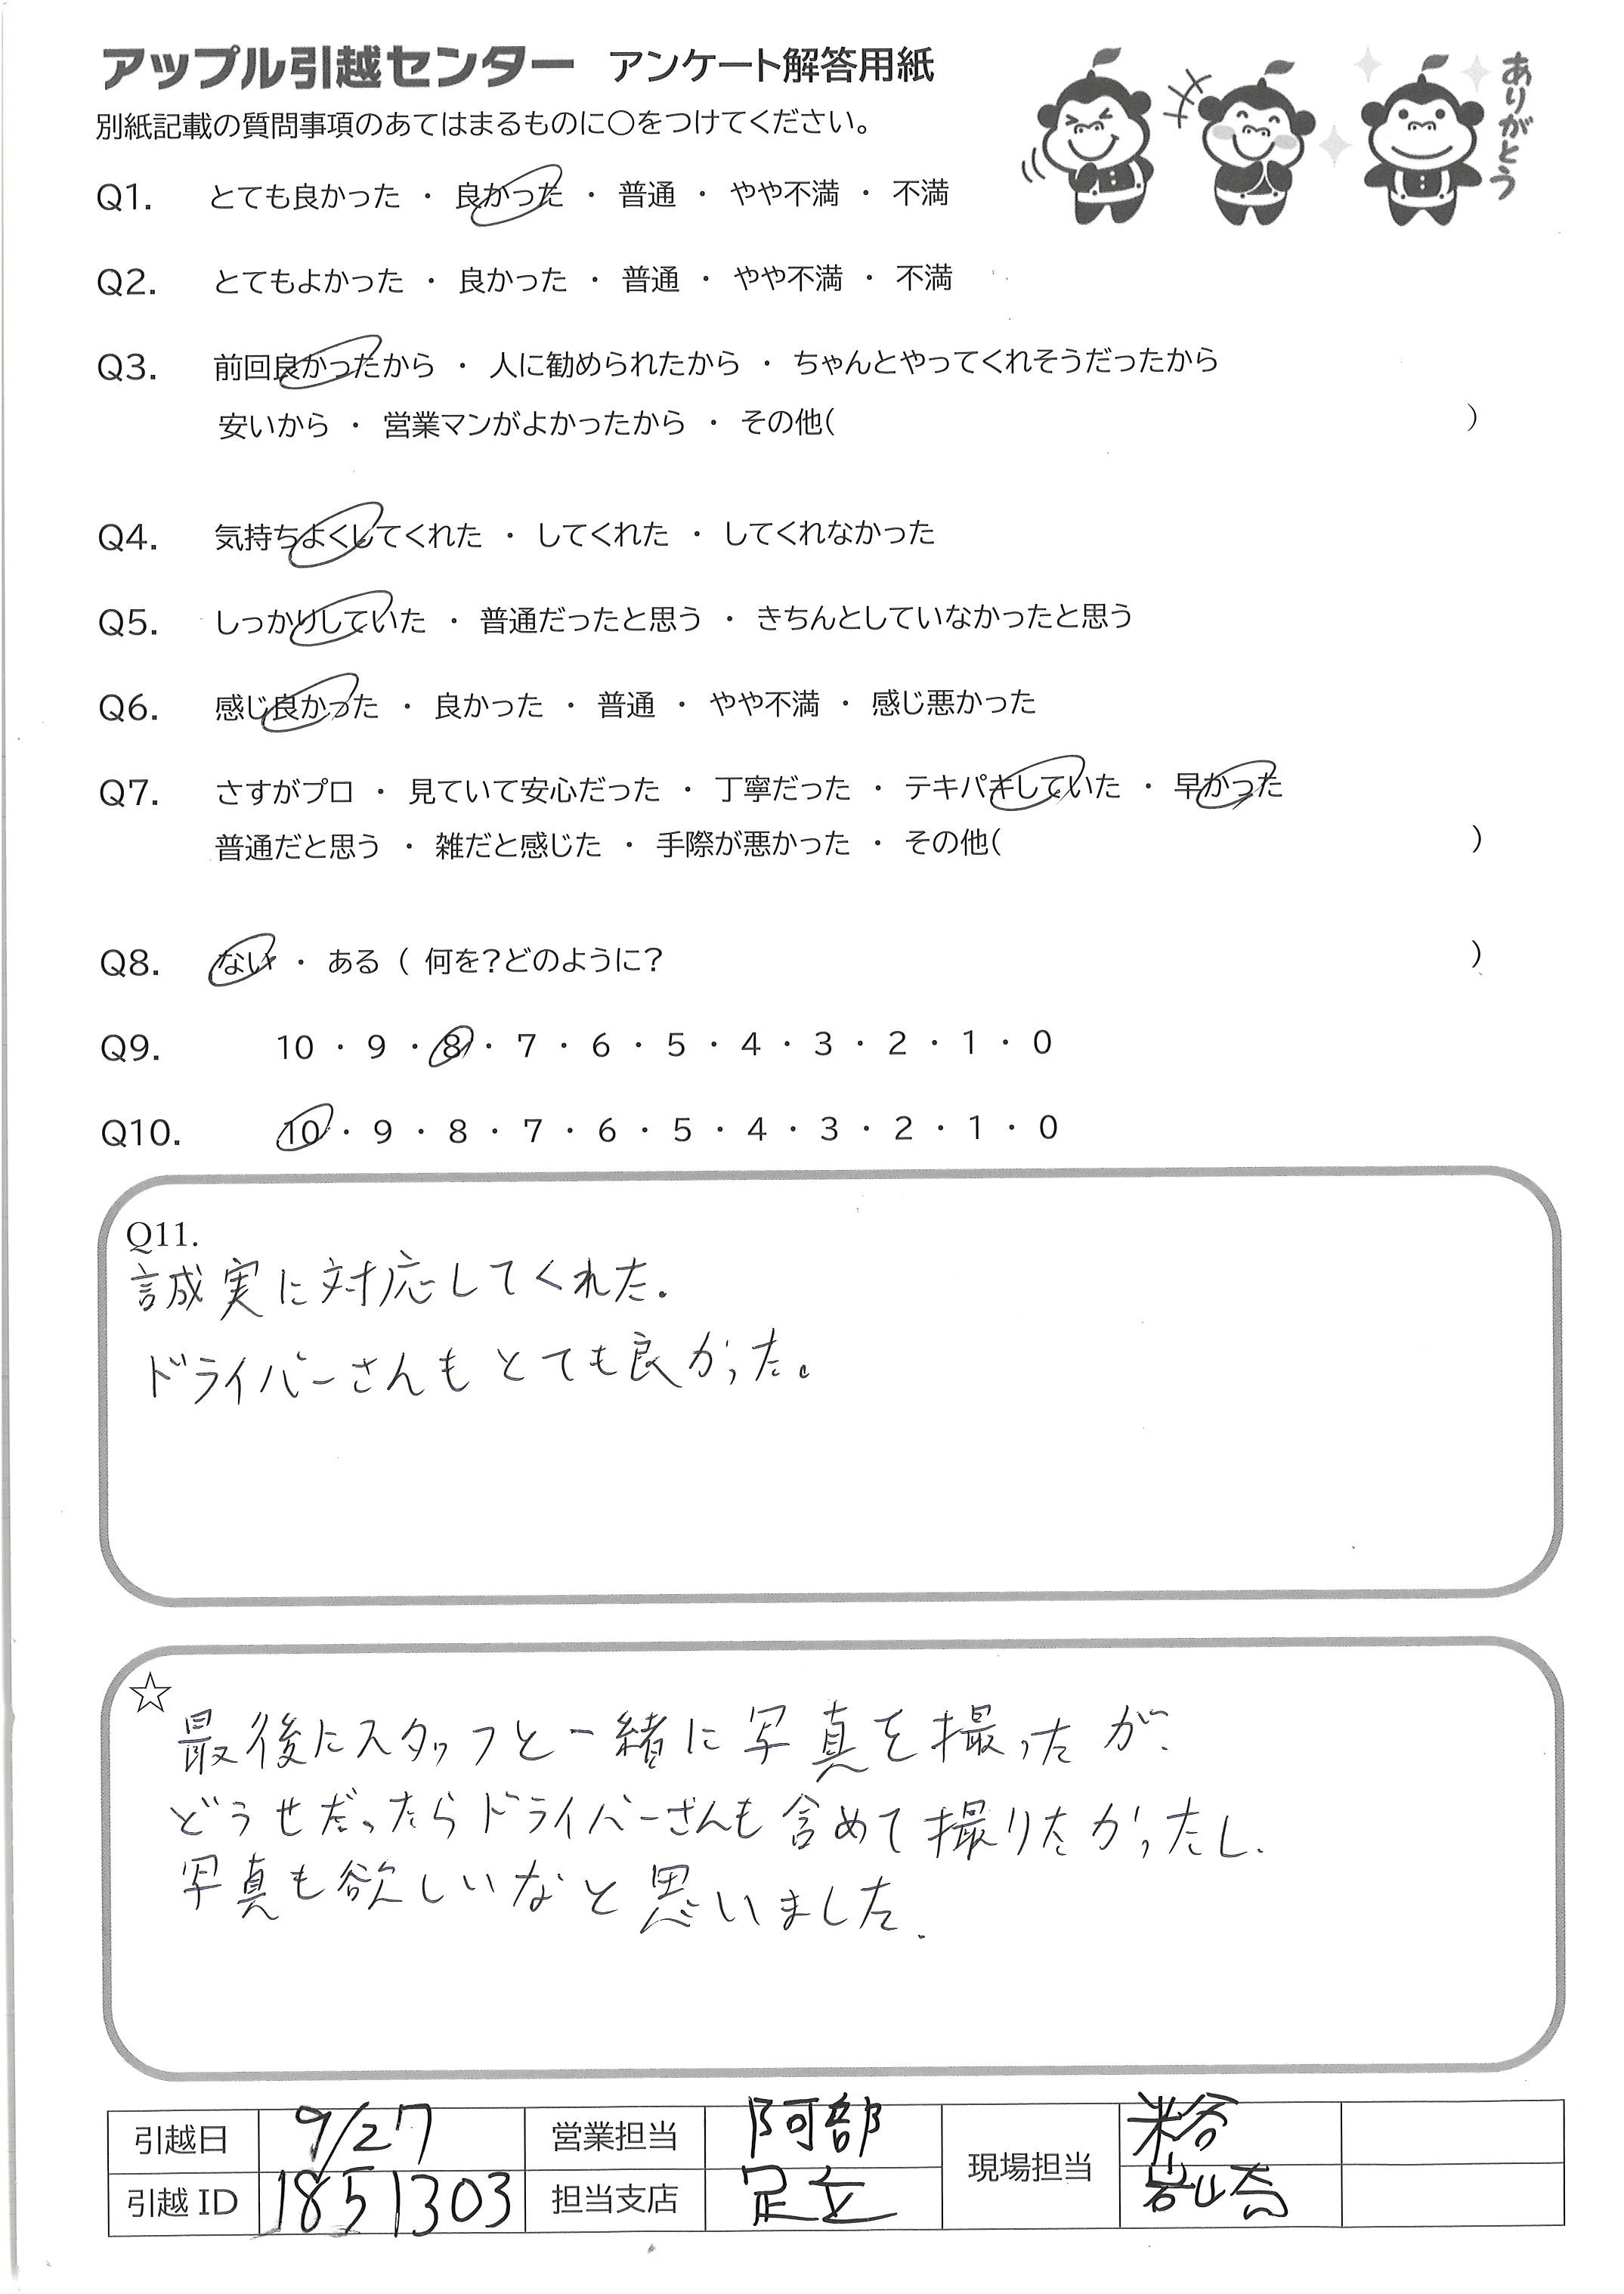 アップル引越センター アンケート解答用紙
別紙記載の質問事項のあてはまるものに○をつけてください。
ありがとう
Q1. とても良かった ・ 良かった ・ 普通 ・ やや不満 ・ 不満
Q2. とてもよかった ・ 良かった ・ 普通 ・ やや不満 ・ 不満
Q3. 前回良かったから ・ 人に勧められたから ・ ちゃんとやってくれそうだったから
安いから ・ 営業マンがよかったから ・ その他( )
Q4. 気持ちよくしてくれた ・ してくれた ・ してくれなかった
Q5. しっかりしていた ・ 普通だったと思う ・ きちんとしていなかったと思う
Q6. 感じ良かった ・ 良かった ・ 普通 ・ やや不満 ・ 感じ悪かった
Q7. さすがプロ ・ 見ていて安心だった ・ 丁寧だった ・ テキパキしていた ・ 早かった
普通だと思う ・ 雑だと感じた ・ 手際が悪かった ・ その他( )
Q8. ない ・ ある ( 何を?どのように? )
Q9. 10 ・ 9 ・ 8 ・ 7 ・ 6 ・ 5 ・ 4 ・ 3 ・ 2 ・ 1 ・ 0
Q10. 10 ・ 9 ・ 8 ・ 7 ・ 6 ・ 5 ・ 4 ・ 3 ・ 2 ・ 1 ・ 0
Q11.
誠実に対応してくれた.
ドライバーさんもとても良かった。
☆
最後にスタッフと一緒に写真を撮ったが、
どうせだったらドライバーさんも含めて撮りたかったし、
写真も欲しいなと思いました.
引越日 9/27 営業担当 阿部 現場担当 米谷
引越ID 1851303 担当支店 足立